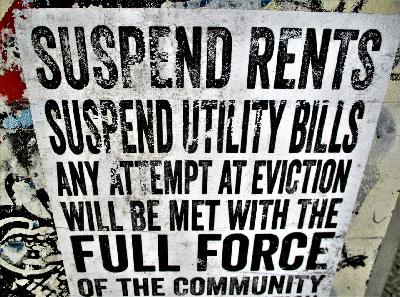 SUSPEND RENTS
SUSPEND UTILITY BILLS
ANY ATTEMPT AT EVICTION
WILL BE MET WITH THE
FULL FORCE
OF THE COMMUNITY